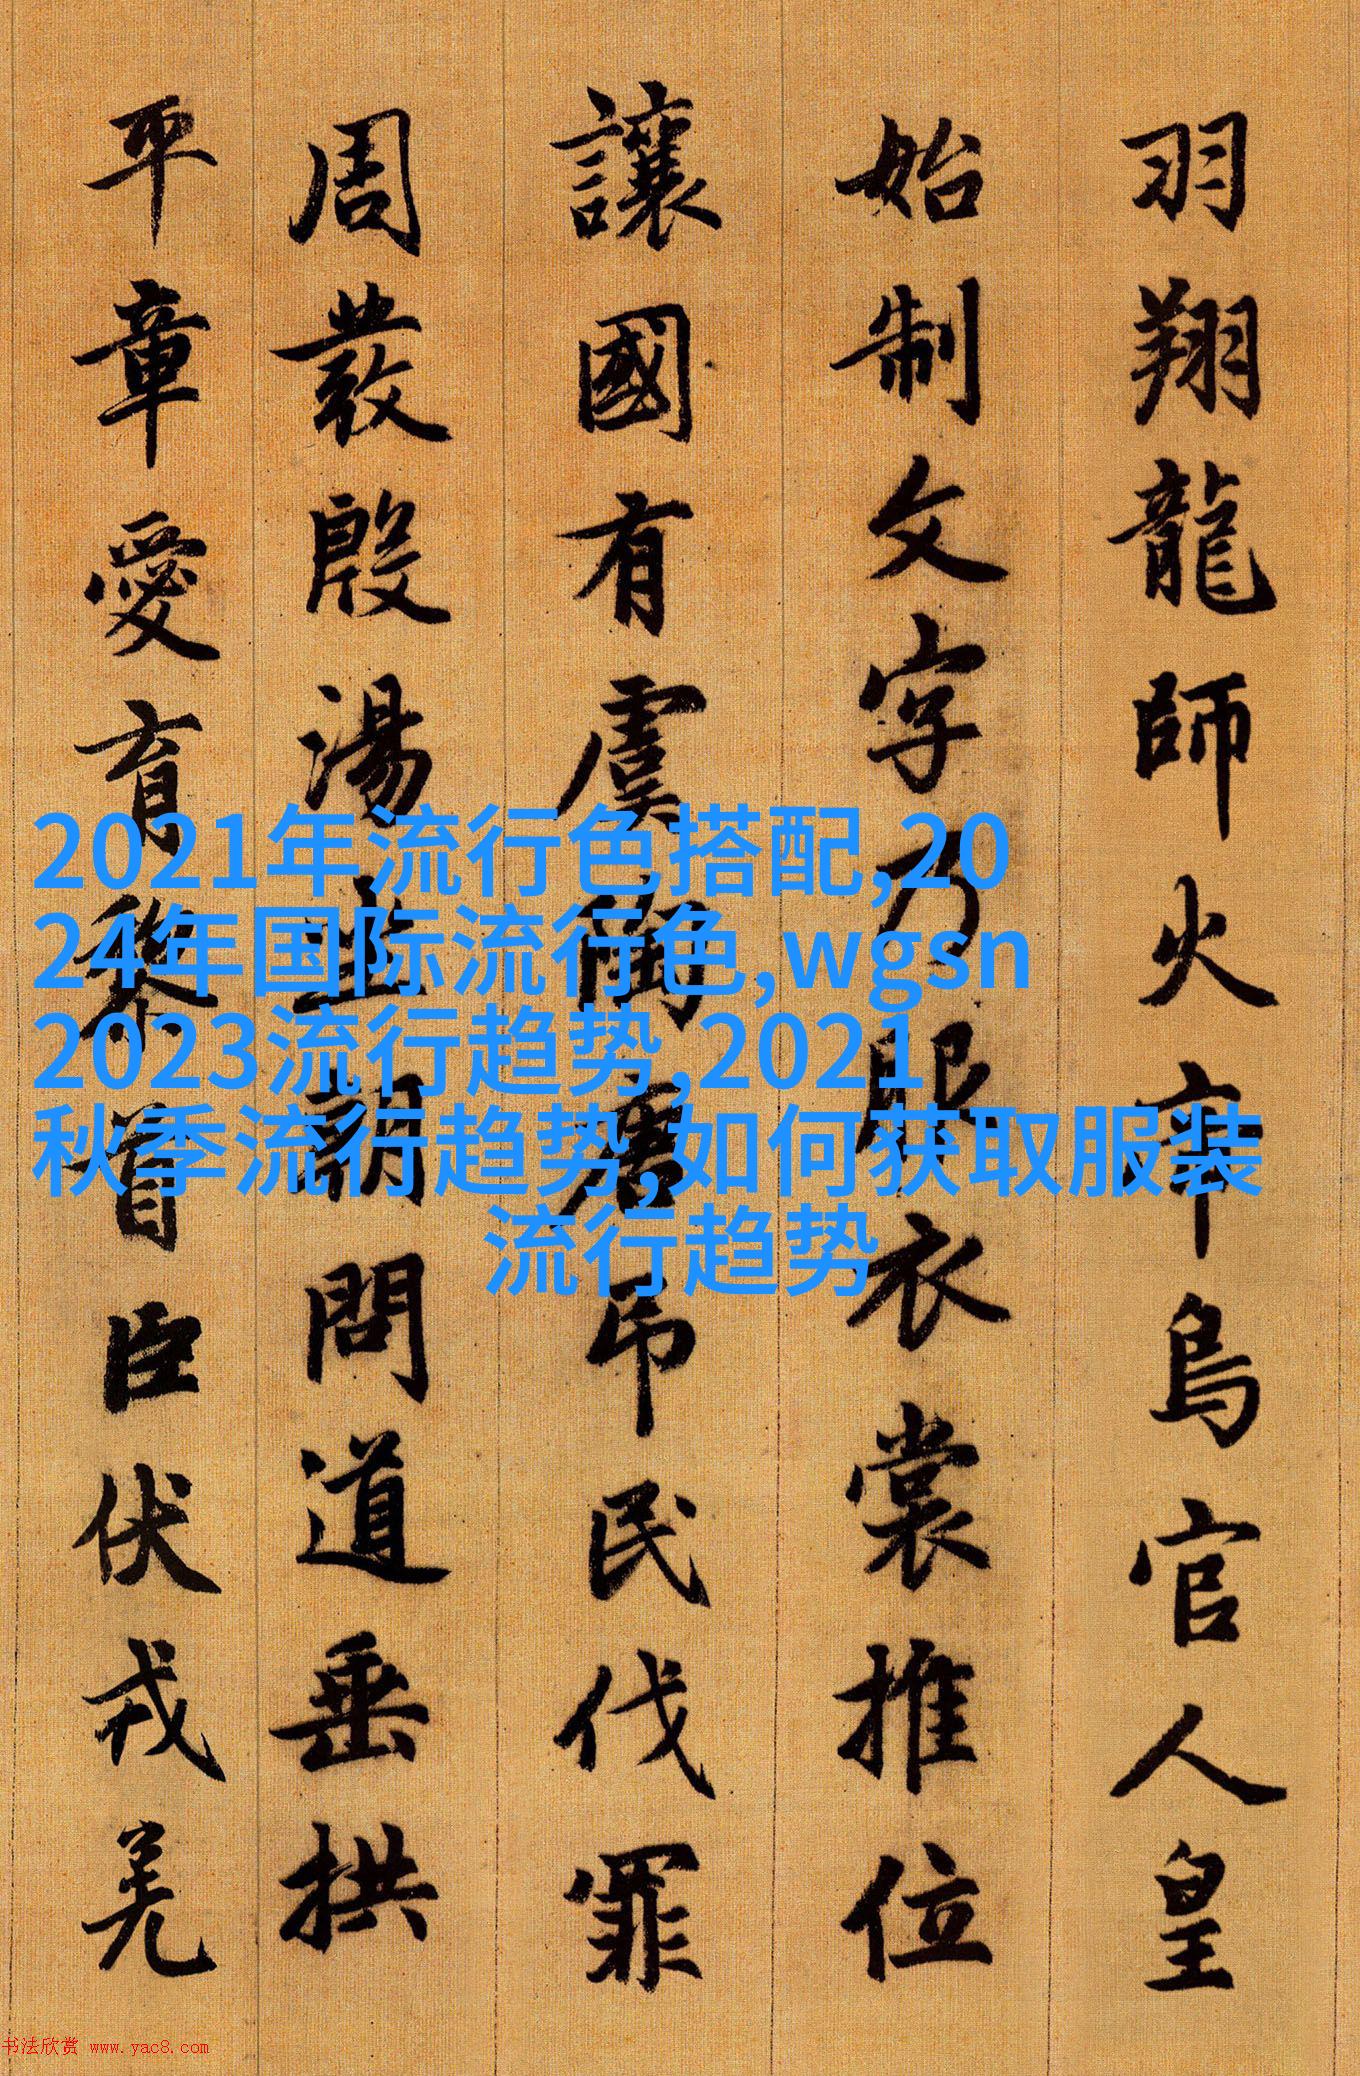 羽翔龍師火帝鳥官人皇
始制文字乃服衣裳推位
讓國有虞陶唐吊民伐罪
周發殷湯坐朝問道垂拱
平章愛育黎首臣伏戎羌
2021年流行色搭配,20
24年国际流行色,wgsn
2023流行趋势,2021
秋季流行趋势,如何获取服装
流行趋势
书法欣赏 www.yac8.com